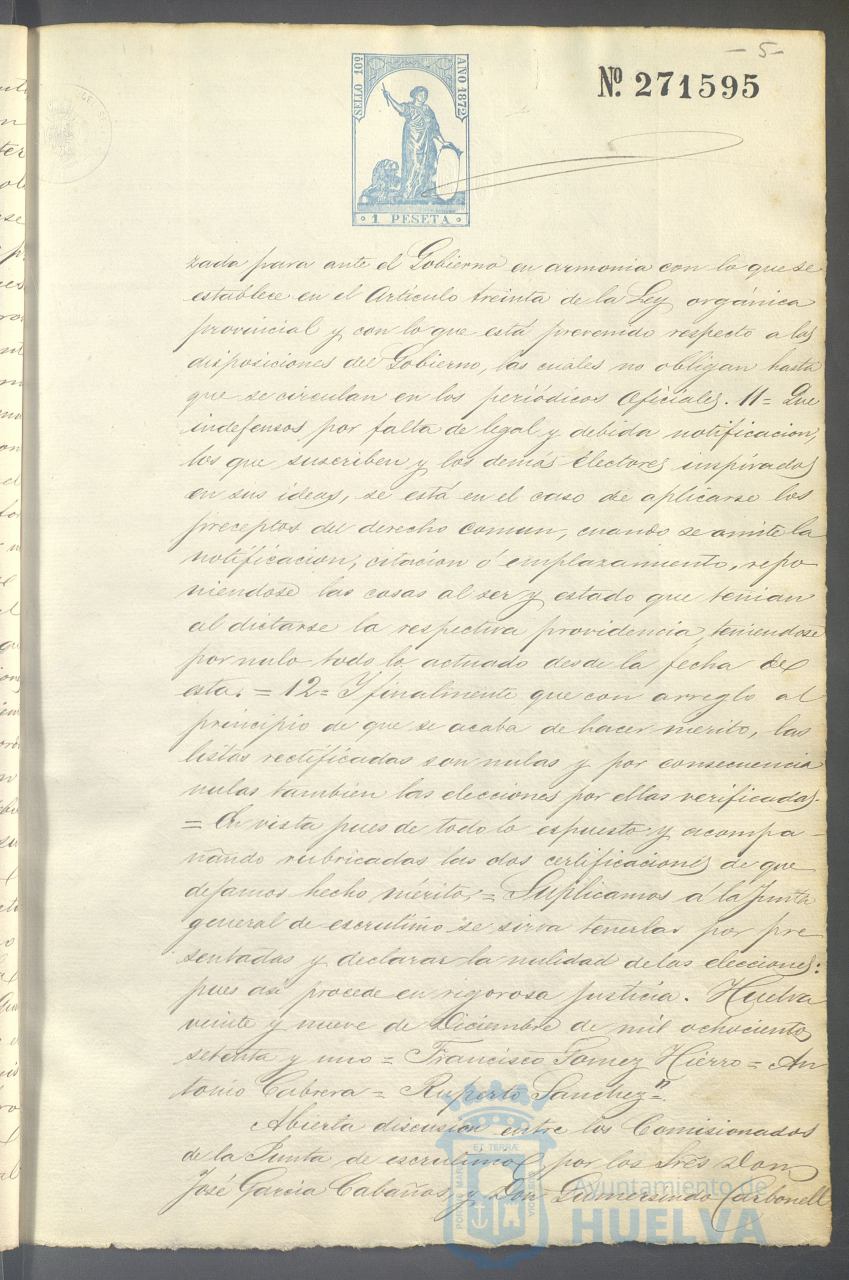 - 5 -
Nº 271595
SELLO 10º
AÑO 1872
1 PESETA
zada para ante el Gobierno en armonia con lo que se
establece en el Artículo treinta de la Ley orgánica
provincial y con lo que está prevenido respecto a las
disposiciones del Gobierno, las cuales no obligan hasta
que se circulan en los periódicos oficiales. 11= Que
indefensos por falta de legal y debida notificacion,
los que suscriben y los demás electores inspirados
en sus ideas, se está en el caso de aplicarse los
preceptos del derecho comun, cuando se omite la
notificacion, citacion ó emplazamiento, repo
niendose las cosas al ser y estado que tenian
al dictarse la respectiva providencia, teniendose
por nulo todo lo actuado desde la fecha de
esta. = 12= Y finalmente que con arreglo al
principio de que se acaba de hacer merito, las
listas rectificadas son nulas y por consecuencia
nulas tambien las elecciones por ellas verificadas.
= En vista pues de todo lo espuesto y acompa-
ñando rubricadas las dos certificaciones de que
dejamos hecho mérito,= Suplicamos á la Junta
general de escrutinio se sirva tenerlas por pre
sentadas y declarar la nulidad de las elecciones:
pues así procede en rigorosa justicia. Huelva
veinte y nueve de Diciembre de mil ochocientos
setenta y uno = Francisco Gomez Hierro = An
tonio Cabrera = Ruperto Sanchez=".
Abierta discusion entre los Comisionados
de la Junta de escrutinio, por los Sres Don
José Garcia Cabañas, y Don Gumersindo Carbonell
PORTUS MARIS
ET TERRA
CUSTODIA
Ayuntamiento de
HUELVA